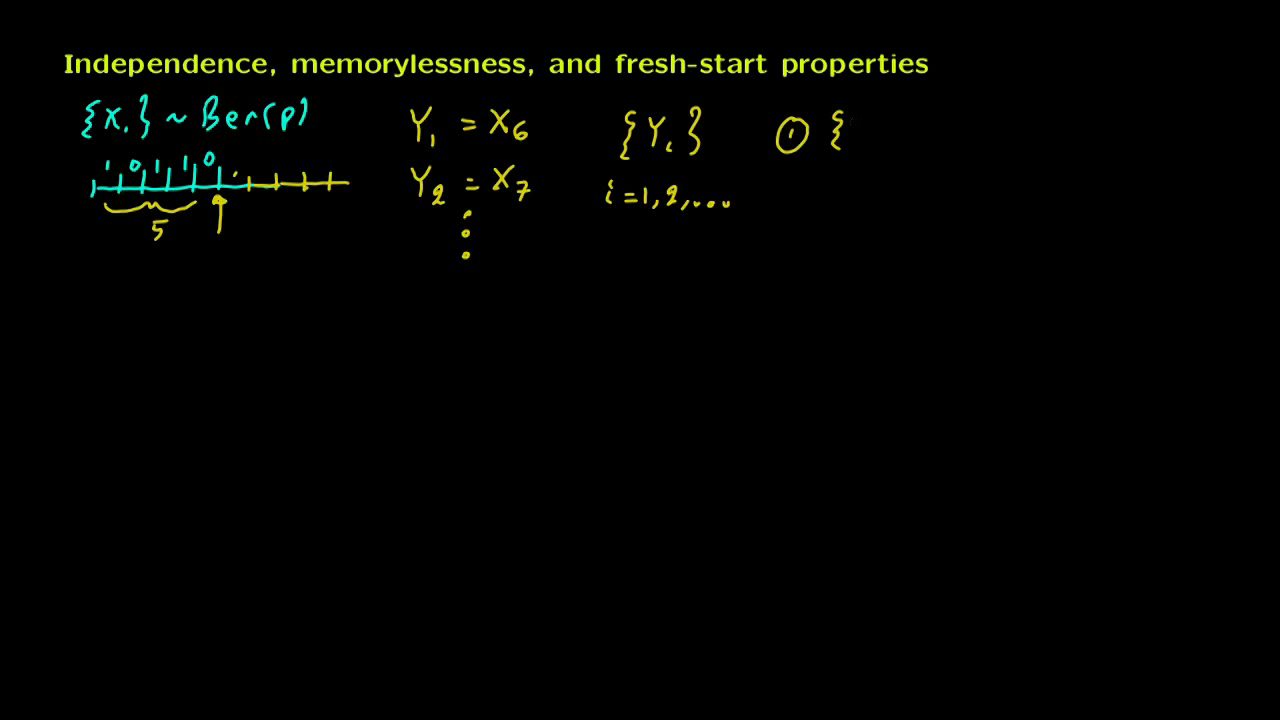 Independence, memorylessness, and fresh-start properties
{X.} ~ Ber(p)
1 0 1 1 0
5
Y₁ = X₆
Y₂ = X₇
⋮
{Yᵢ}
i = 1, 2, ...
① {